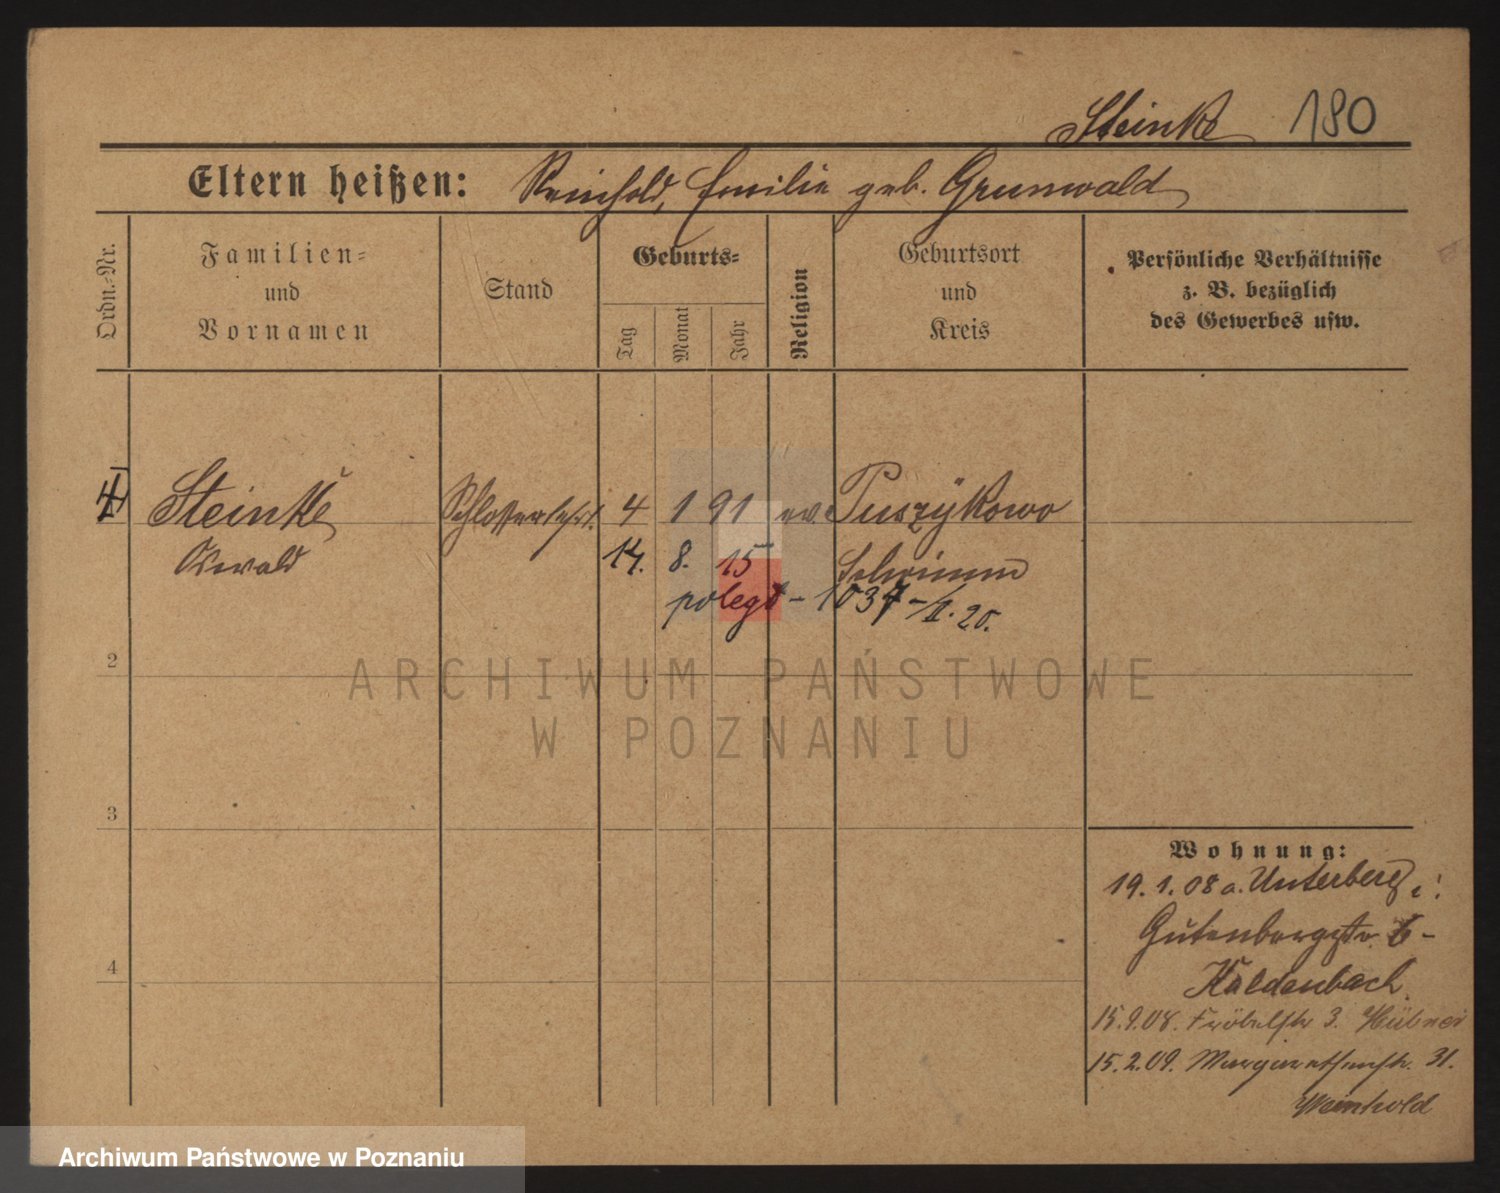 Steinke 180
Eltern heißen: Reinhold, Emilie geb. Grunwald
Ordn.-Nr.
Familien-
und
Vornamen
Stand
Geburts-
Tag
Monat
Jahr
Religion
Geburtsort
und
Kreis
Persönliche Verhältnisse
z. B. bezüglich
des Gewerbes usw.
Steinke Schlosserlehrl. 4 1 91 ev. Puszÿkowo
Oswald 14. 8. 15 Schrimm
poległ - 1037-/II.20.
2
ARCHIWUM PAŃSTWOWE
W POZNANIU
3
Wohnung:
19.1.08 a. Unterberg
Gutenbergstr. 6-
Kaldenbach
15.9.08. Fröbelstr 3. Hübner
4
15.2.09. Margarethenstr. 31.
Weinhold
Archiwum Państwowe w Poznaniu